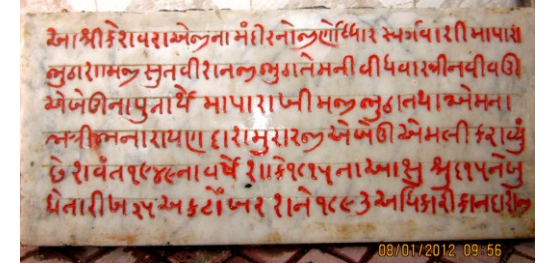 આ શ્રી કેશવરાએજીના મંદીરનો જીર્ણોધ્ધાર સ્વર્ગવાશી માપારા
લુઢારામજી સુત વીરાનજી લુઢા તેમની વીધવા
એ બેઊના પુનાર્થે માપારા ખીમજી લુઢા તથા એમના
નારાયણ દ્વારા મુરારજી એ બેઊ એ મલી કરાવ્યું
છે શવંત ૧૯૪૯ના વર્ષે શાકે ૧૮૧૫ના આશુ શુદ ૧૫ને બુ
ધે તારીખ ૨૫ અકટોંબર શને ૧૮૯૩ અધિકારી
08/01/2012 09:56